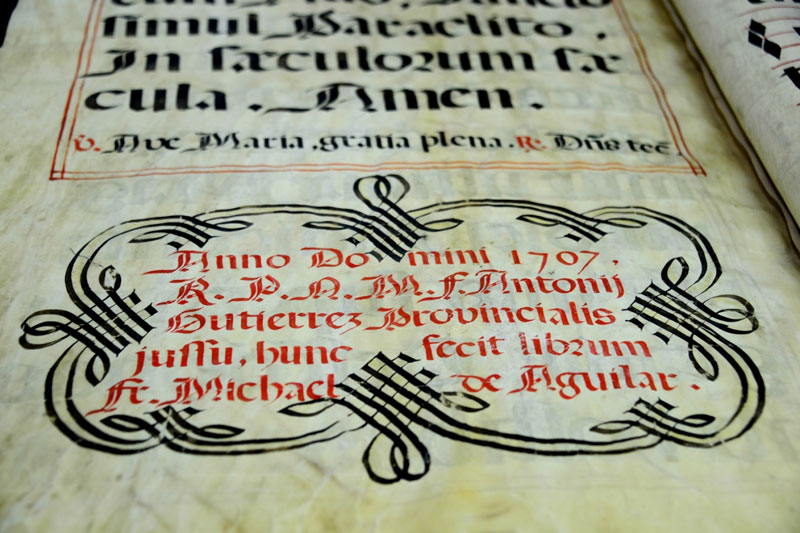 simul Paraclito,
In sæculorum sæ
cula. Amen.
v. Ave Maria, gratia plena. R. Dñs tec̃.
Anno Domini 1707,
R. P. N. M. F. Antonij
Gutierrez Provincialis
jussu, hunc fecit librum
Fr. Michael de Aguilar.